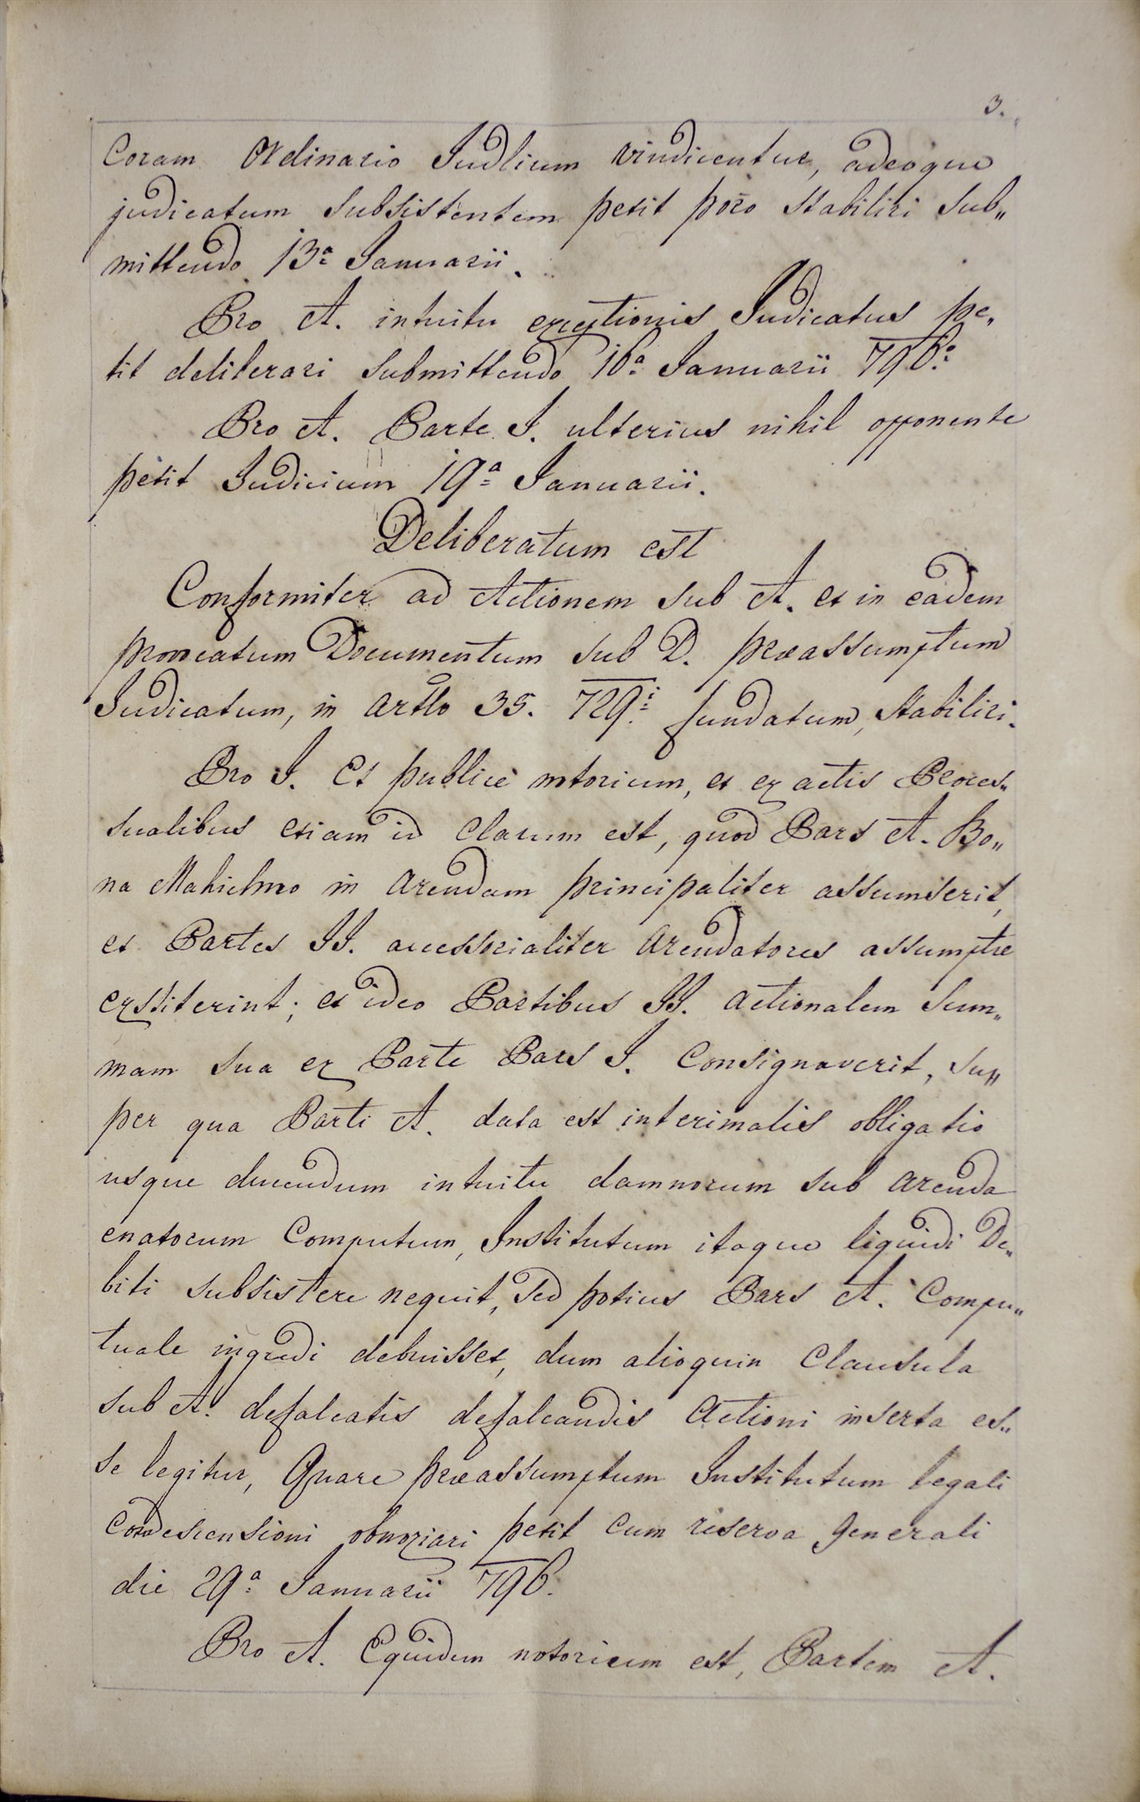 3.
Coram Ordinario Judlium vindicentur, adeoque
judicatum subsistentem petit porro stabiliri sub„
mittendo 13ª Januarii.
Pro A. intuitu exceptionis Judicatus pe„
tit deliberari submittendo 16ª Januarii 796º
Pro A. Parte I. ulterius nihil opponente
petit Judicium 19ª Januarii.
Deliberatum est
Conformiter ad Actionem sub A. et in eadem
provocatum Documentum sub D. præassumptum
Judicatum, in artlo 35. 729i fundatum, stabiliri.
Pro I. Et publice notorium, et ex actis Proces„
sualibus etiam id clarum est, quod Pars A. Bo„
na Makichno in arendam principaliter assumserit,
et Partes II. accessorialiter arendatores assumptæ
exstiterint; et ideo Partibus II. actionalem sum„
mam sua ex Parte Pars I. consignaverit, su„
per qua Parti A. data est interimalis obligatio
usque ducendum intuitu damnorum sub arenda
enatorum computum, Institutum itaque liquidi De„
biti subsistere nequit, sed potius Pars A. Compu„
tuale ingredi debuisset, dum alioquin clausula
sub A. defalcatis defalcandis actioni inserta es„
se legitur, Quare præassumptum Institutum legali
condescensioni obnoxiari petit cum reserva generali
die 29ª Januarii 796.
Pro A. Equidem notorium est, Partem A.